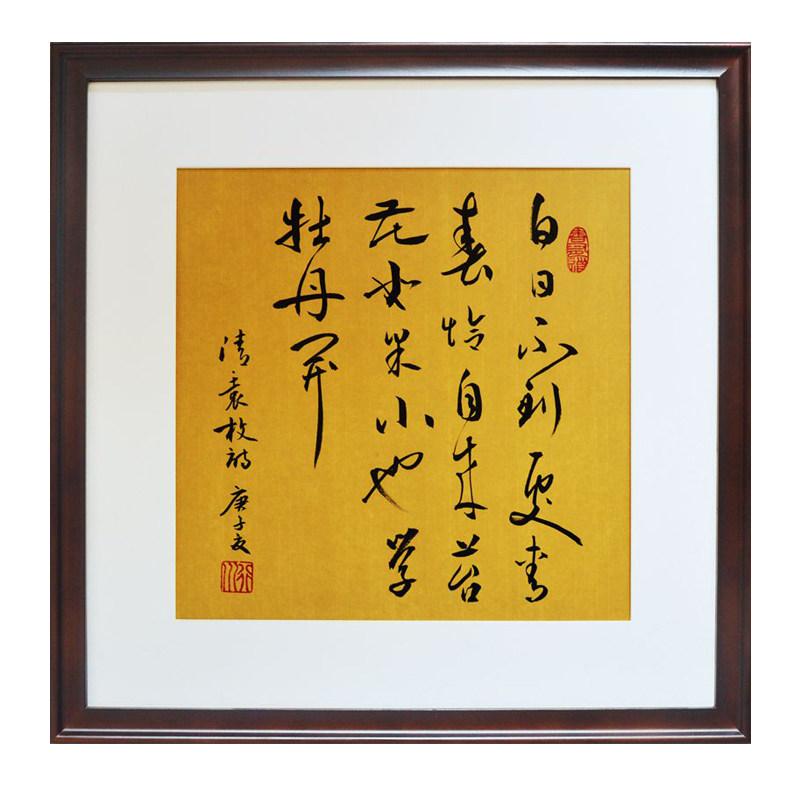 白日不到處青
春恰自来苔
花如米小也学
牡丹開
清袁枚詩 庚子夏